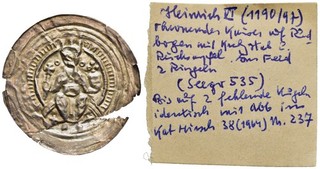 Heinrich VI (1190/97)
thronender Kaiser auf Rad
bogen mit Kreuzstab u.
Reichsapfel. Im Feld
2 Ringeln
(Seega 535)
Bis auf 2 fehlende Kugeln
identisch mit Abb im
Kat Hirsch 38 (1964) Nr. 237